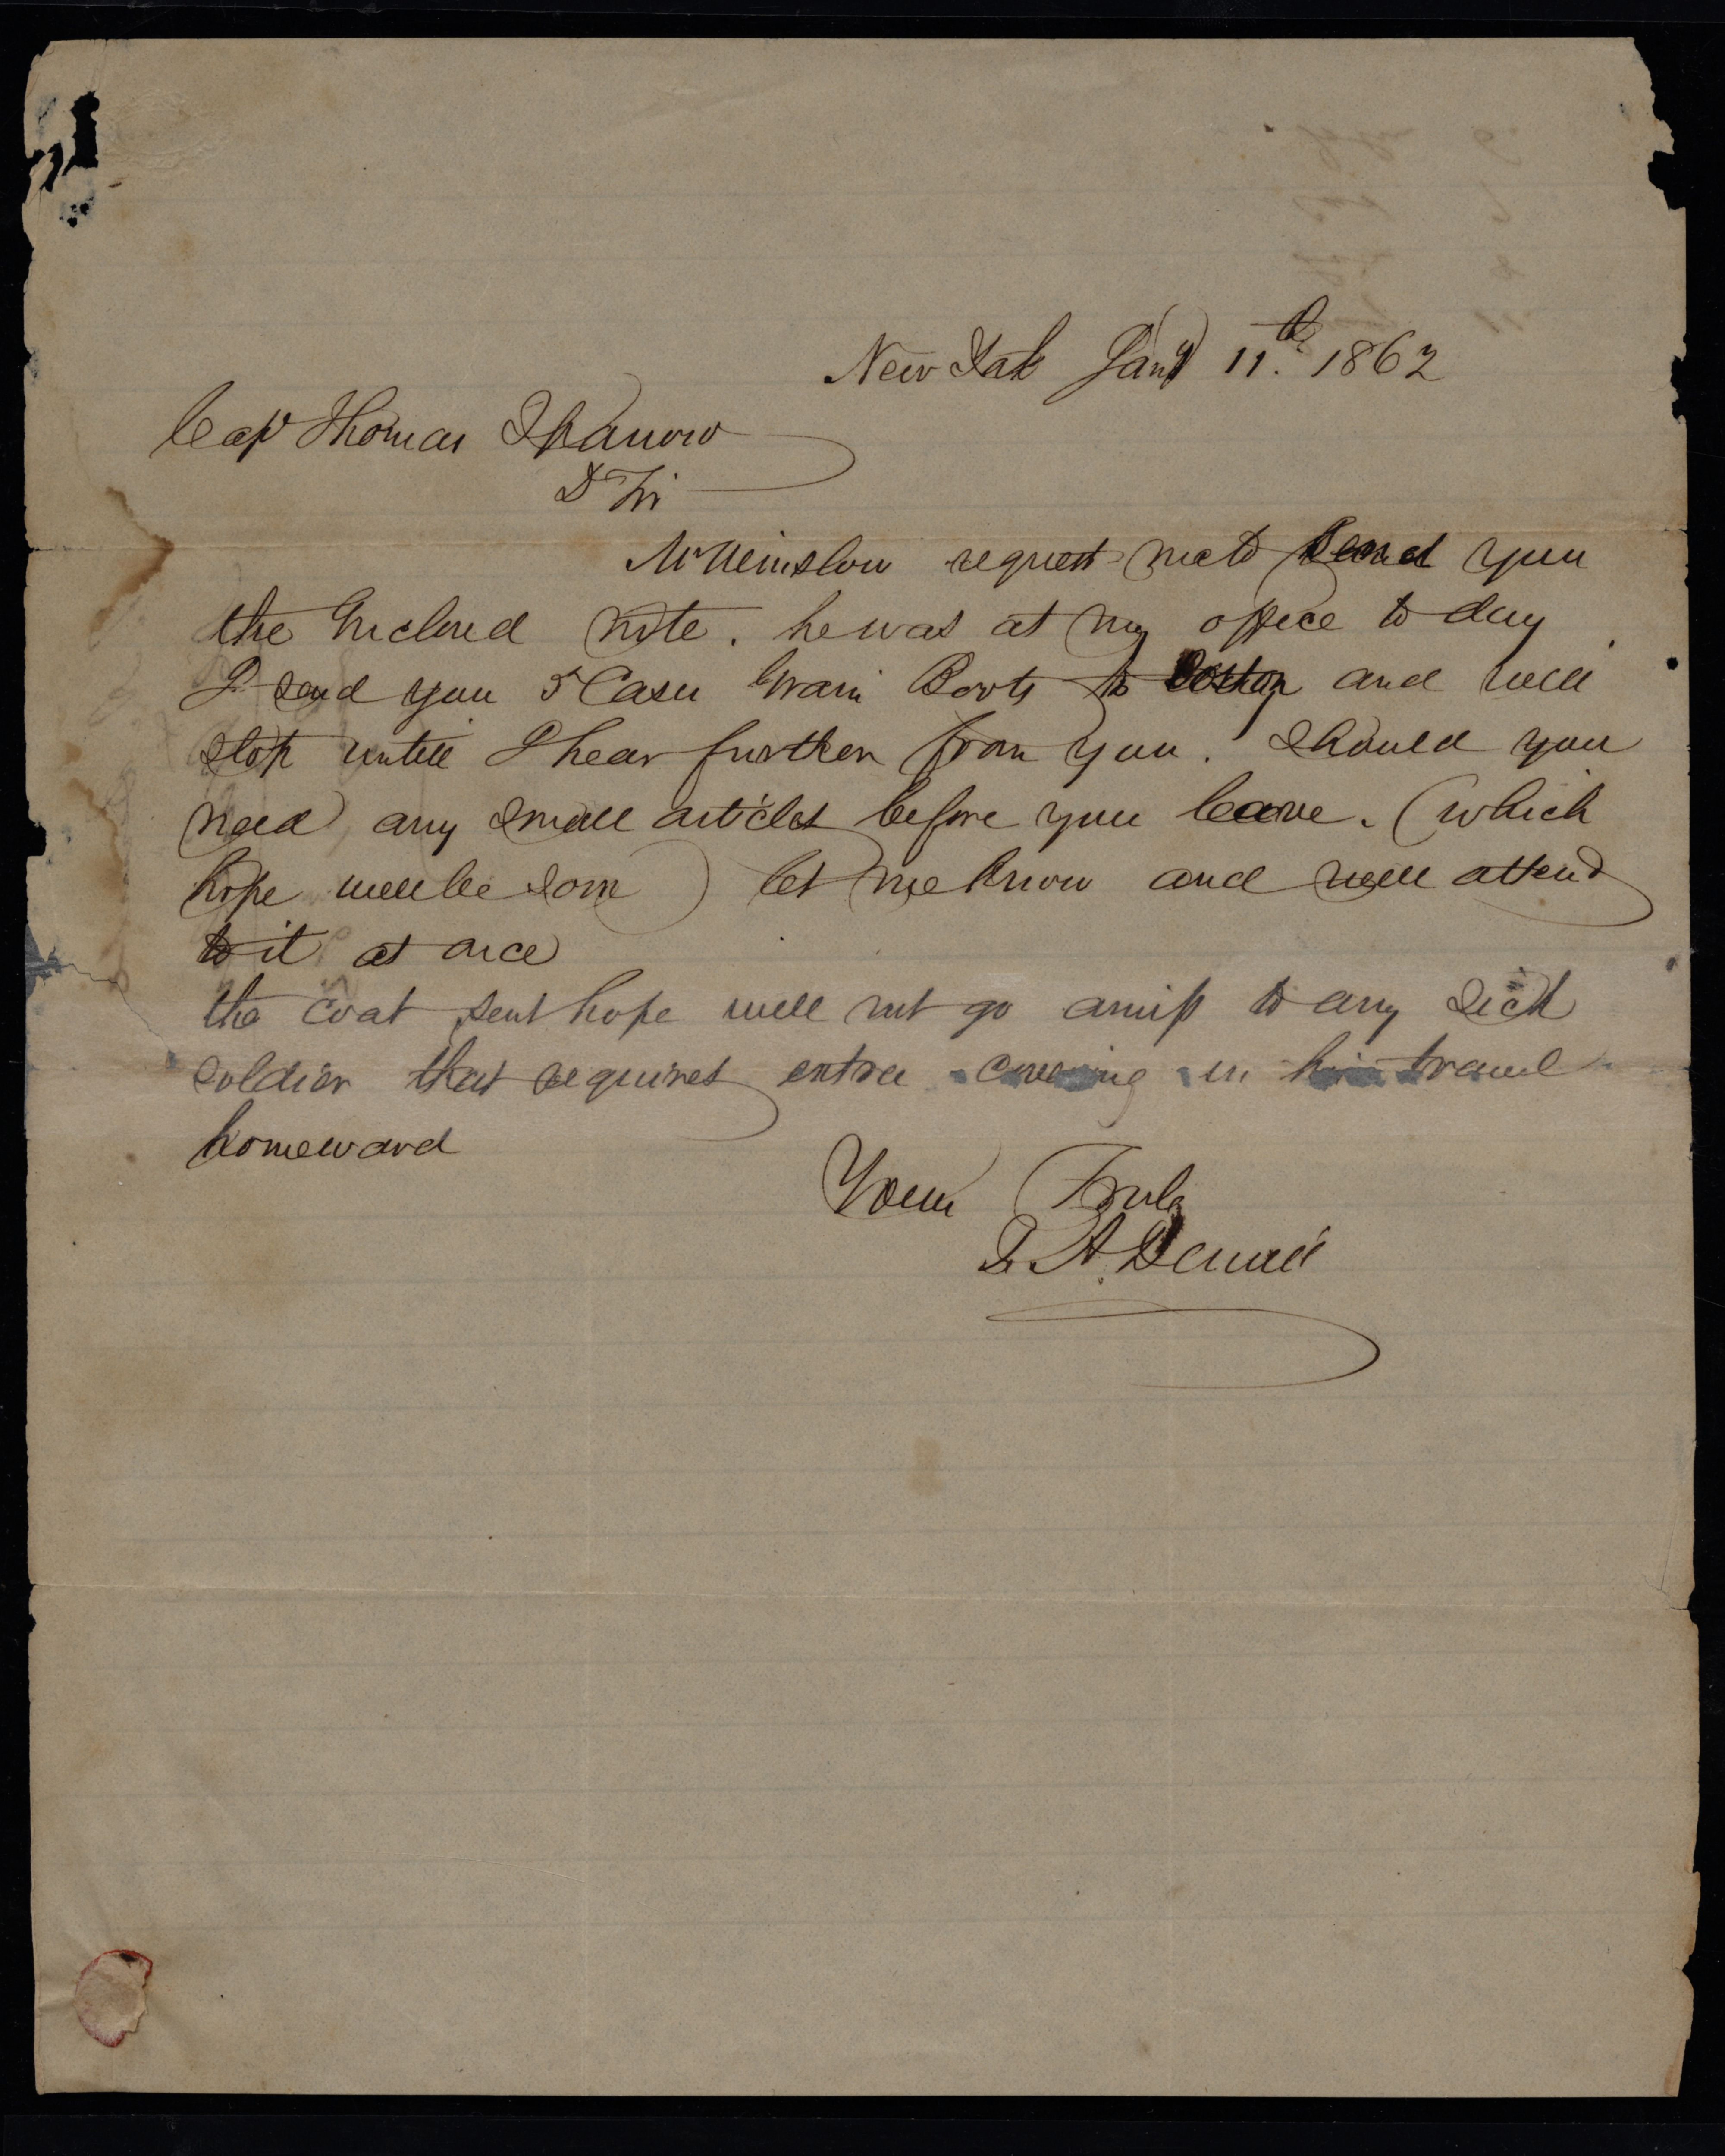 New York Jany 11th. 1862
Capt Thomas
D Sir
Mr Winslow request me to send you
the Inclosed note. he was at my office to day
I send you 5 Cases Grain Boots to Boston and will
stop untill I hear further from you. Should you
need any small articles before you leave. (which
hope will be soon) let me know and will attend
to it at once
the coat sent hope will not go amiss to any sick
soldier that requires extra covering in his travel
homeward
Yours Truly